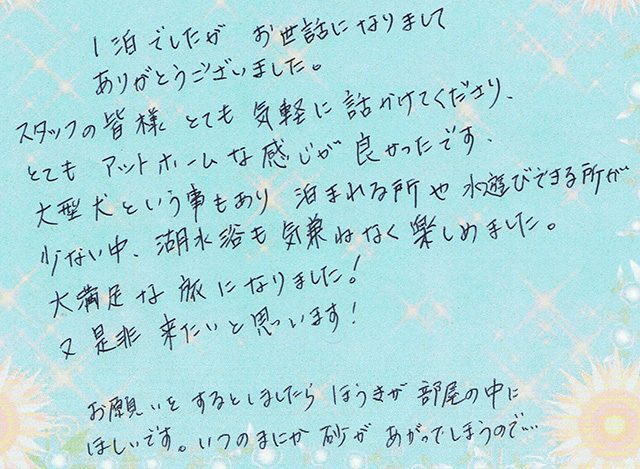 1泊でしたが お世話になりまして
ありがとうございました。
スタッフの皆様 とても 気軽に 話かけてくださり、
とても アットホームな感じが 良かったです、
大型犬という事もあり 泊まれる所や水遊びできる所が
少ない中、湖水浴も気兼ねなく楽しめました。
大満足な旅になりました!
又是非 来たいと思います!
お願いをするとしましたら ほうきが 部屋の中に
ほしいです。いつのまにか 砂が あがってしまうので…